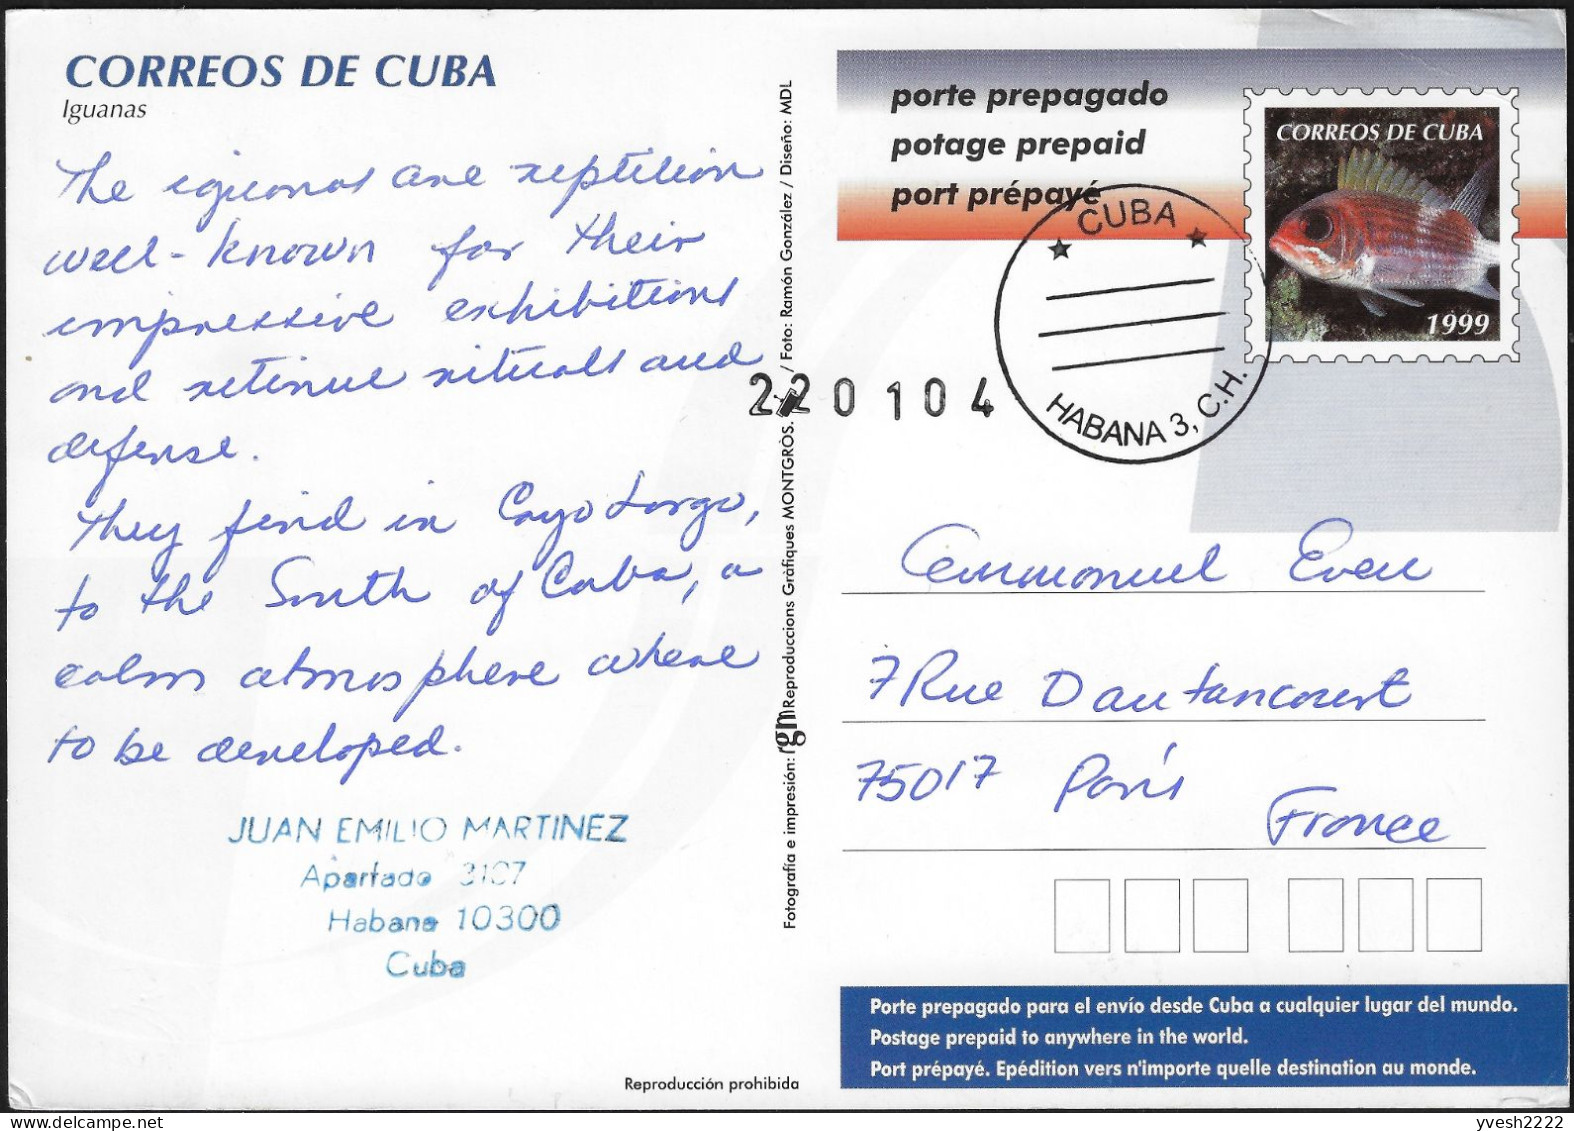 CORREOS DE CUBA
Iguanas
The iguanas are reptilian
well-known for their
impressive exhibitions
and retinue rituals and
defense.
They find in Cayo Largo,
to the South of Cuba, a
calm atmosphere where
to be developed.
JUAN EMILIO MARTINEZ
Apartado 3107
Habana 10300
Cuba
Reproducción prohibida
Fotografía e impresión: rgm Reproduccions Gràfiques MONTGRÒS. / Foto: Ramón González / Diseño: MDL
porte prepagado
potage prepaid
port prépayé
CORREOS DE CUBA
1999
CUBA
HABANA 3, C.H.
220104
Emmanuel Even
7 Rue Dautancourt
75017 París
France
Porte prepagado para el envío desde Cuba a cualquier lugar del mundo.
Postage prepaid to anywhere in the world.
Port prépayé. Epédition vers n'importe quelle destination au monde.
yvesh2222